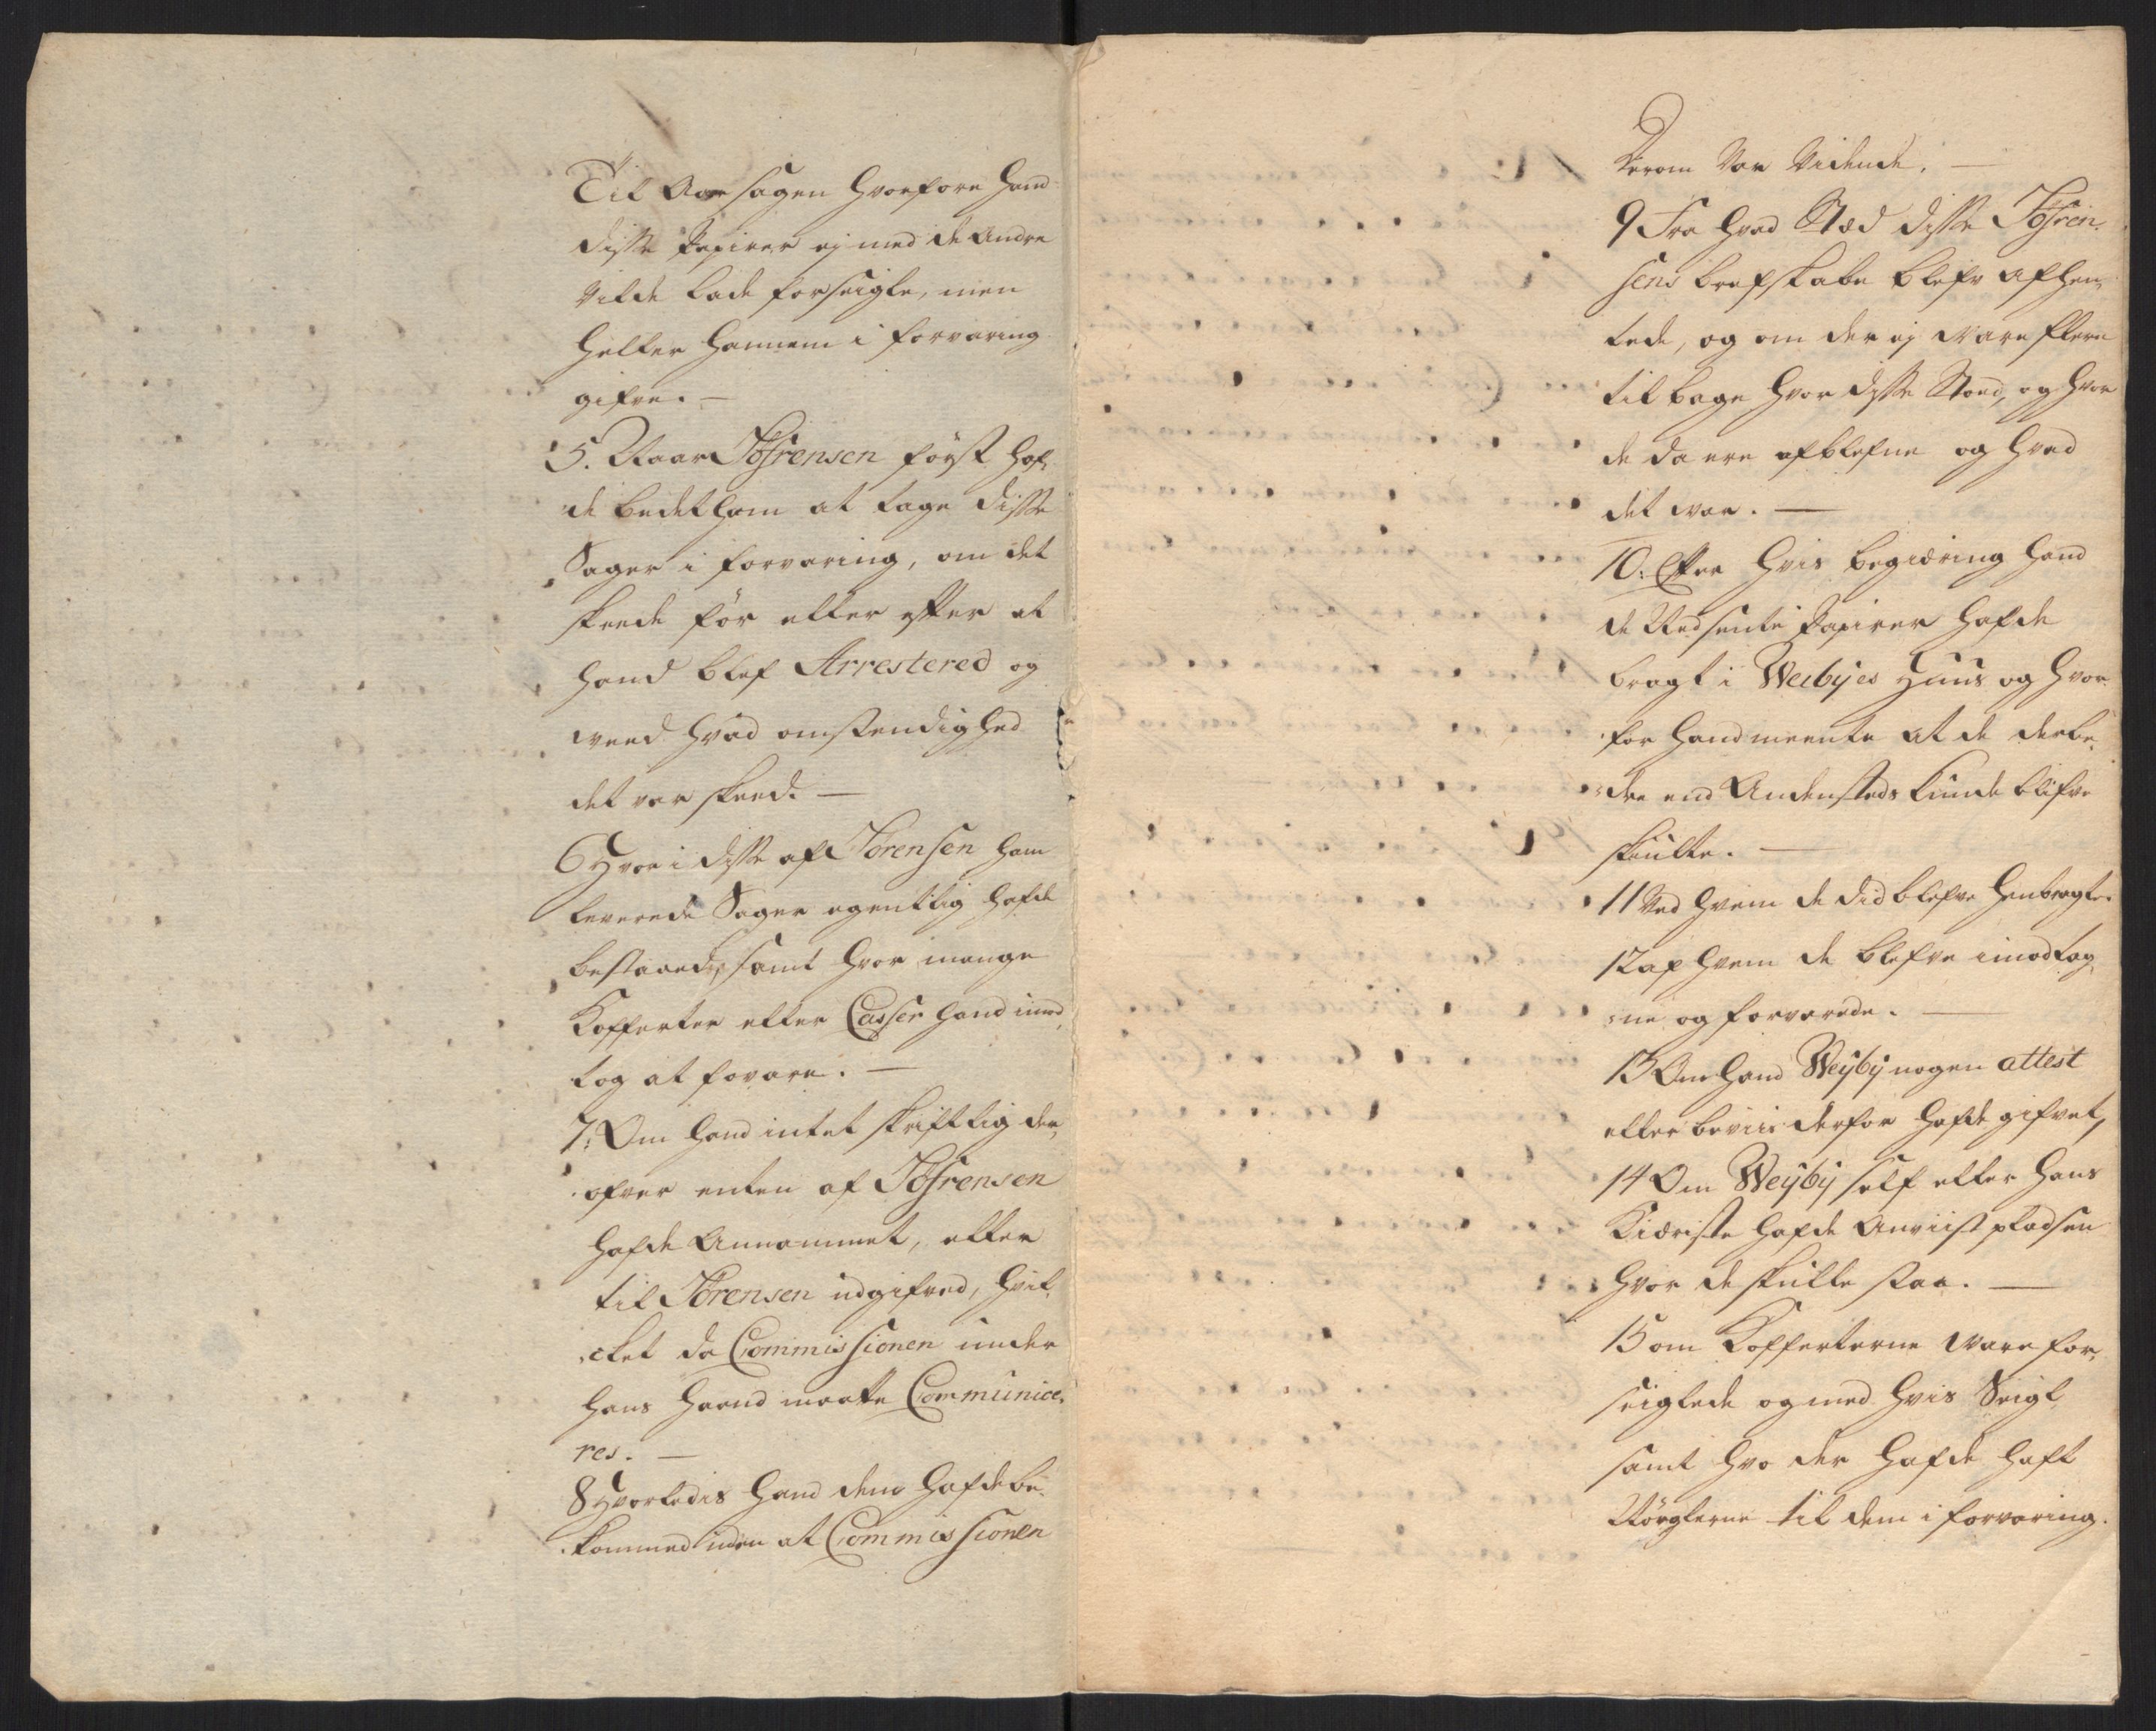 Til Aarsagen hvorfore hand
disse Papirer ej med de Andre
vilde lade forseigle, men
heller hannem i forvaring
gifve. —
5. Naar Sörensen först haf,
de bedet ham at tage disse
Sager i forvaring, om det
skeede för eller efter at
hand blef Arrestered og
weed hvad omstendighed
det var skeed. —
6 Hvori disse af Sörensen ham
leverede Sager egentlig hafde
bestaaed, samt hvor mange
Kofferter eller Casser hand imod,
tog at forvare. —
7. Om hand intet skriftlig der,
ofver enten af Sörensen
hafde Annammet, eller
til Sörensen udgifved, hvil,
cket da Commissionen under
hans haand maatte Communice,
res. —
8 Hvorledis hand dem hafde be,
kommed uden at Commissionen
derom Var Vidende. —
9 Fra hvad Stæd disse Sören,
sens brefskabe blefv afhen,
tede, og om der ej ware flere
tilbage hvor disse Stoed, og hvor
de da ere afblefne og hvad
det war. —
10. Efter hvis begiæring hand
de Nedsente Papirer hafde
bragt i Weibyes Huus og hvor,
for hand meente at de derbe,
dre end Andensteds kunde blifve
skiulte. —
11 Ved hvem de did blefve henbragte.
12 af hvem de blefve imodtag,
ne og forvarede. —
13 Om hand Weyby nogen attest
eller beviis derfor hafde gifvet,
14 Om Weyby self eller hans
Kiæriste hafde Anviist pladsen
hvor de skulle staa. —
15 om Kofferterne ware for,
seiglede og med hvis Seigl
samt hvo der hafde haft
Nöglerne til dem i forvaring.